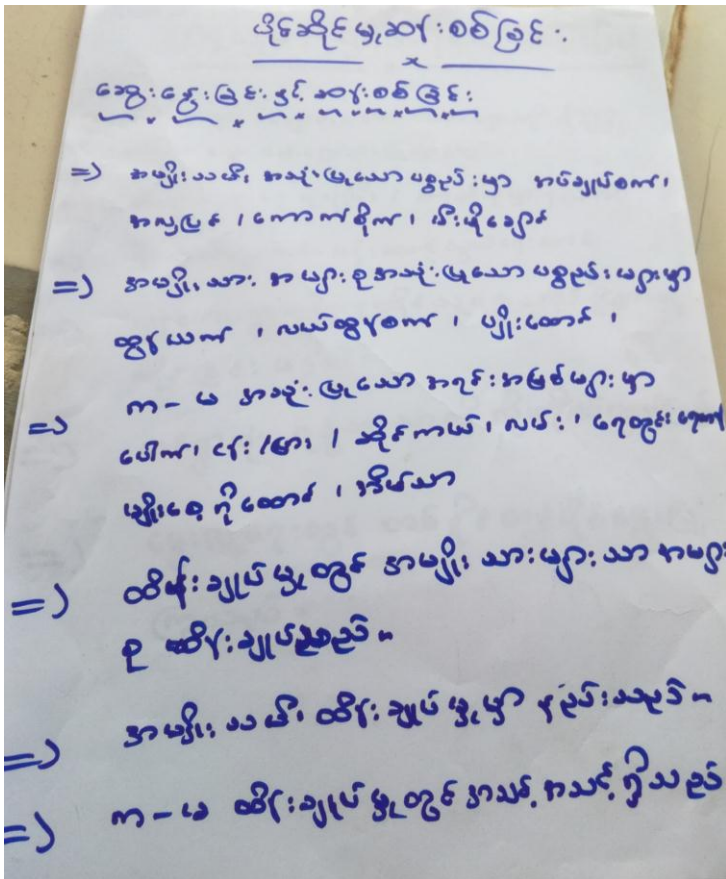 ပိုင်ဆိုင်မှုဆန်းစစ်ခြင်း
x
ဆွေးနွေးခြင်းနှင့် ဆန်းစစ်ခြင်း
=> အမျိုးသမီး အသုံးပြုသော ပစ္စည်းမှာ အပ်ချုပ်စက်၊
အလှပြင်၊ ကောက်စိုက်၊ မီးဖိုချောင်
=> အမျိုးသား အများစုအသုံးပြုသော ပစ္စည်းများမှာ
ထွန်ယက်၊ လယ်ထွန်စက်၊ ပျိုးထောင်၊
=> က-မ အသုံးပြုသော အရင်းအမြစ်များမှာ
ပေါက်၊ ငန်း၊ မြား၊ ဆိုင်ကယ်၊ လမ်း၊ ရေတွင်း
မျိုးစေ့ ထောင်၊ အိမ်သာ
=> ထိန်းချုပ်မှုတွင် အမျိုးသားများသာ အများ
စု ထိန်းချုပ်သည်။
=> အမျိုးသမီး ထိန်းချုပ်မှုမှာ နည်းသည်။
=> က-မ ထိန်းချုပ်မှုတွင် အသင့်အသင့်ရှိသည်